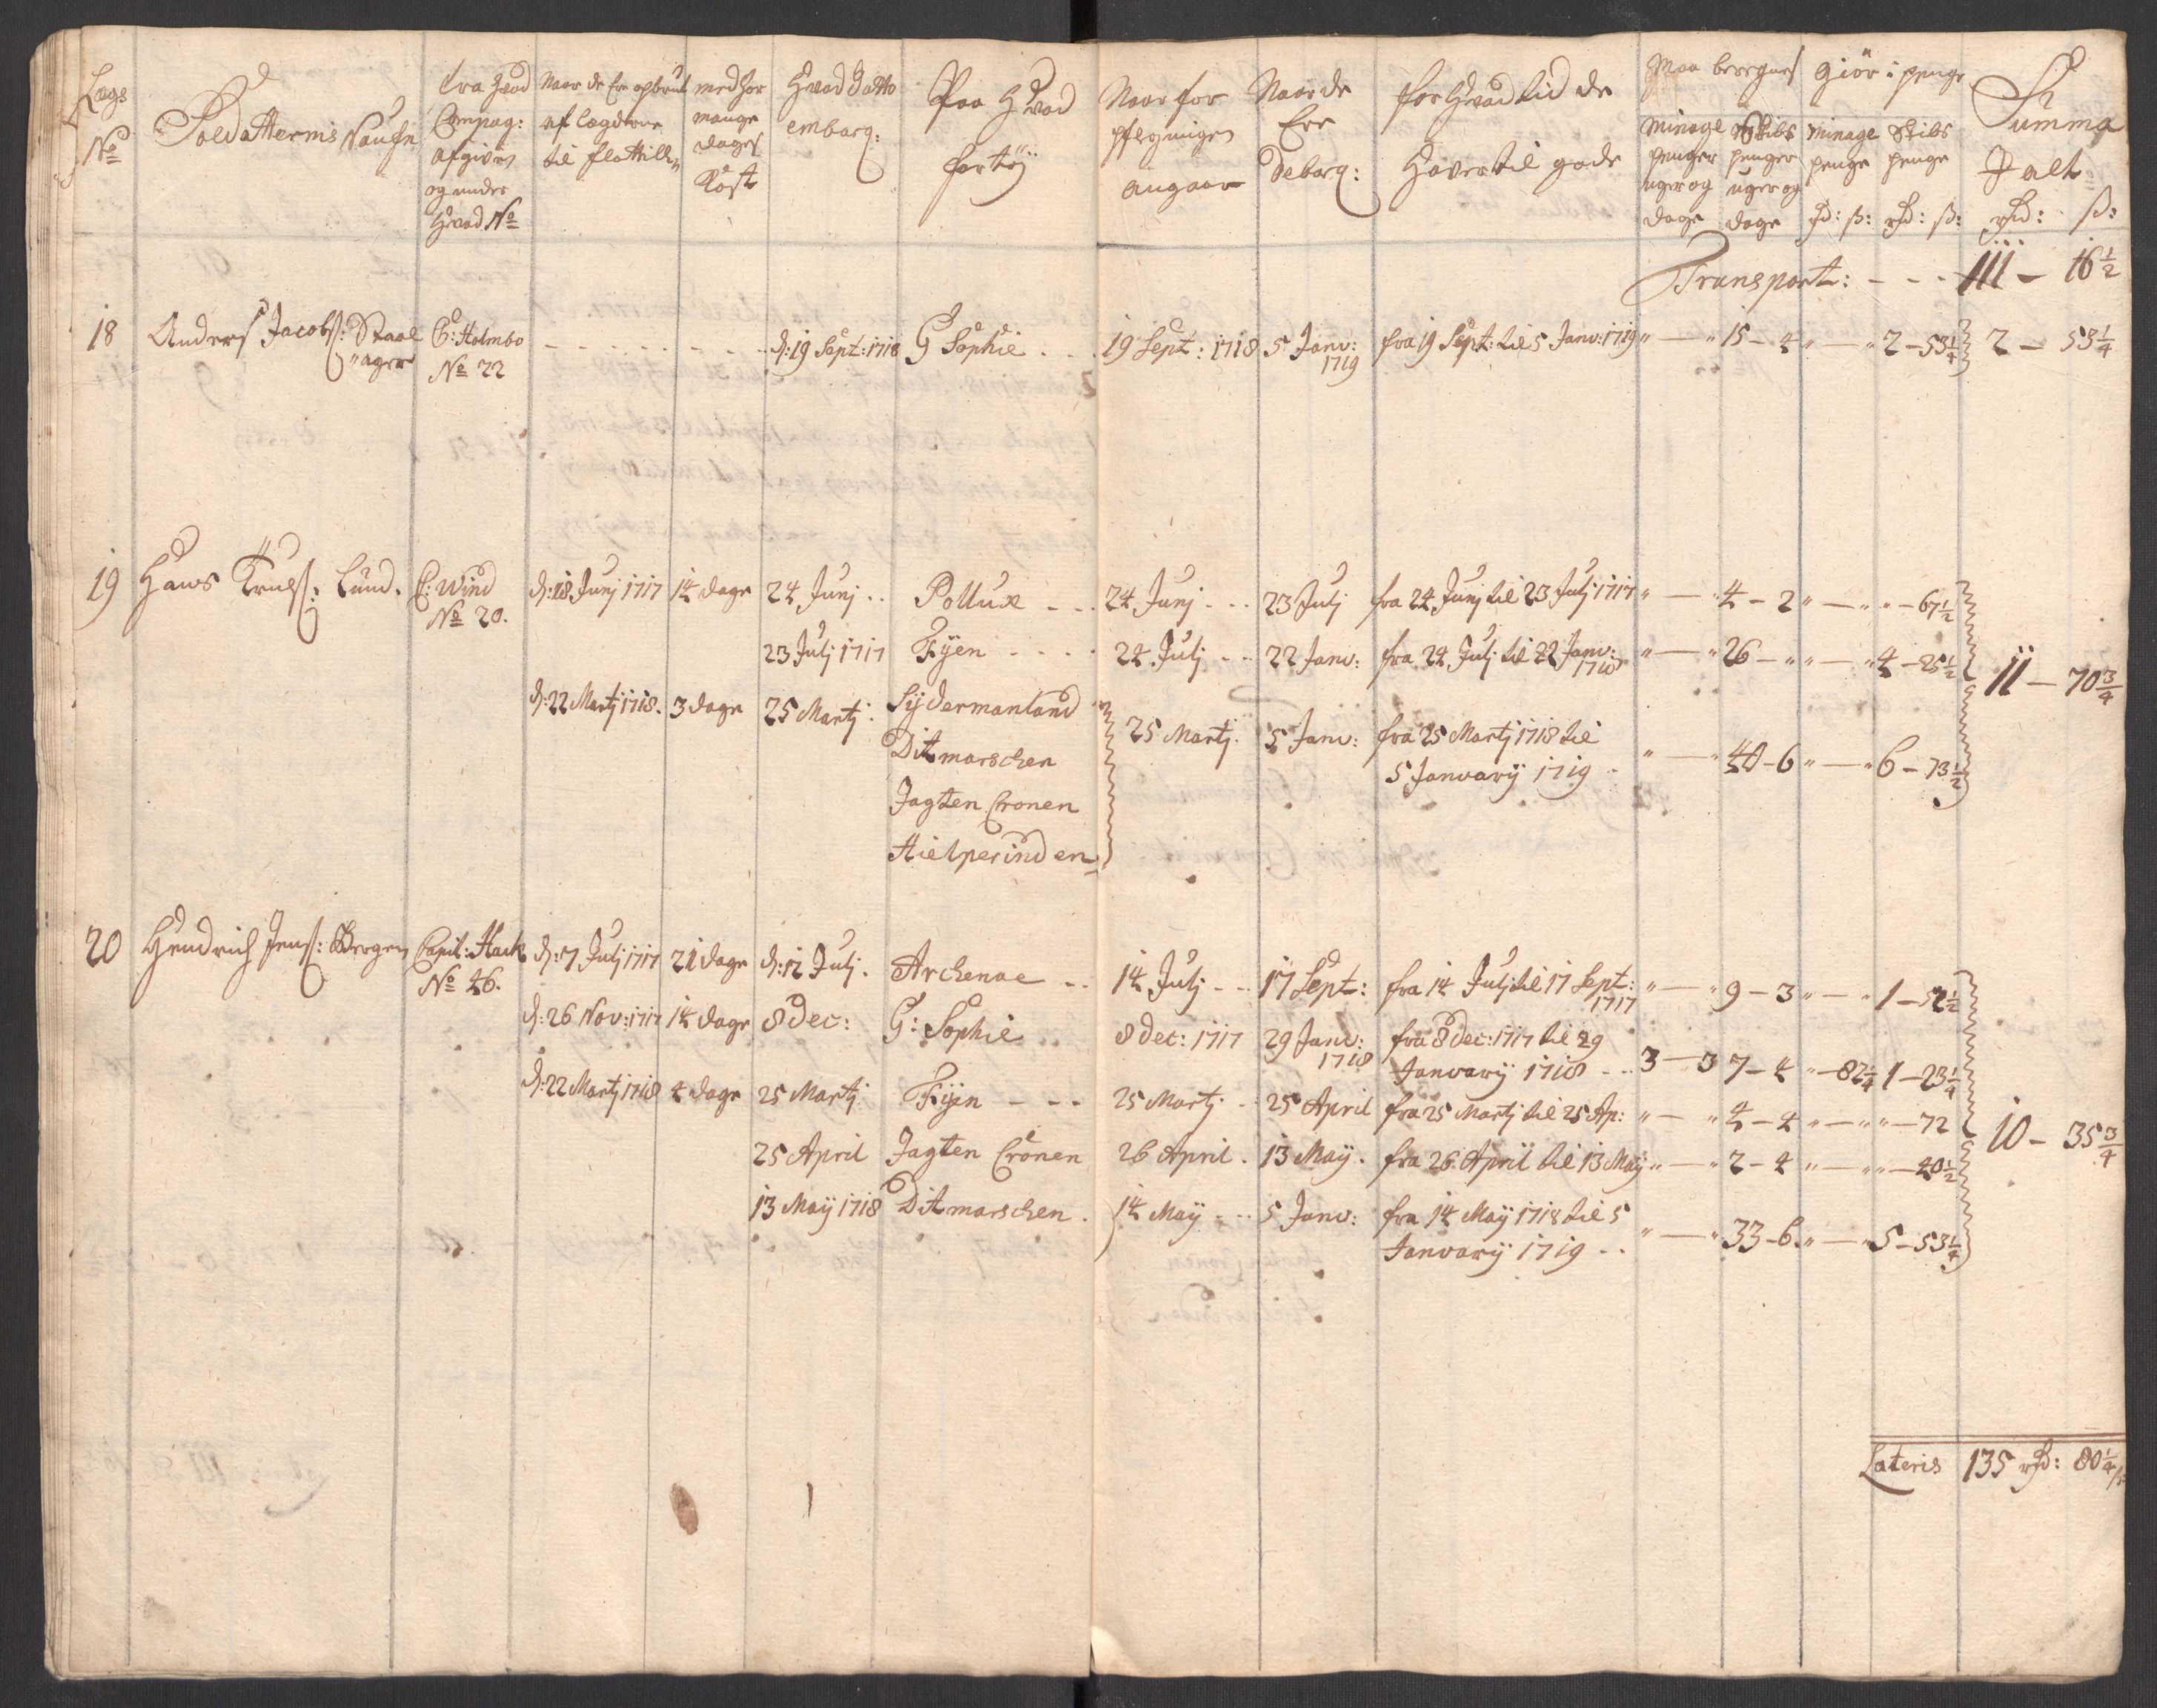 Lægs No
Soldatternis Naufn
fra hvad Compag: afgiven og under hvad No
Naar de Ere opbrut af Lægderne til flottillen
med hor mange dages Kost
Hvad Datto embarq:
Paa Hvad fartöÿ
Naar for pflegningen angaar
Naar de Ere Debarq:
for Hvad tid de Haver til gode
Maa beregnes
Minage penger uger og dage
Skibs penger uger og dage
giör i penge
Minage penge rd: ß:
Skibs penge rd: ß:
Summa J alt rd: ß:
Transport: - - - 111 – 16½
18 Anders Jacobs: Staal C: Holmbo - - - d: 19 Sept: 1718 G Sophie . . 19 Sept: 1718 5 Janv: fra 19 Sept: til 5 Janv: 1719 " — " 15 – 4 " — " 2 – 53¼ 2 – 53¼
"ager No 22 1719
19 Hans Truls: Lund. C: Wind d: 18 Junj 1717 14 dage 24 Junj . . Pollux - - 24 Junj - - 23 Julj fra 24 Junj til 23 Julj 1717 " — " 4 – 2 " — " " – 67½
No 20.
23 Julj 1717 Fÿen - - - - 24 Julj - - 22 Janv: fra 24 Julj til 22 Janv: 1718 " — " 26 – " " — " 4 – 25½ 11 – 70¾
d: 22 Martj 1718. 3 dage 25 Martj: Sÿdermanland
25 Martj. 5 Janv: fra 25 Martj 1718 til
Ditmarschen
5 Januarÿ 1719 - " — " 40 – 6 " — " 6 – 73½
Jagten Cronen
Hielperinden
20 Hendrich Jens: Bergen Capit: Hack d: 7 Julj 1717 21 dage d: 12 Julj. Archenae . . 14 Julj - - 17 Sept: fra 14 Julj til 17 Sept: 1717 " — " 9 – 3 " — " 1 – 52½
No 46.
d: 26 Nov: 1717 14 dage 8 Dec: G: Sophie 8 Dec: 1717 29 Janv: 1718 fra 8 Dec: 1717 til 29
Januarÿ 1718 - - 3 — 3 7 – 4 " – 82¼ 1 – 23¼
d: 22 Martj 1718 4 dage 25 Martj Fÿen - - - 25 Martj - 25 April fra 25 Martj til 25 Ap: " — " 4 – 4 " — " " – 72 10 – 35¾
25 April Jagten Cronen 26 April. 13 Maÿ. fra 26 April til 13 Maÿ " — " 2 – 4 " — " " – 40½
13 Maÿ 1718 Ditmarschen. 14 Maÿ - - 5 Janv: fra 14 Maÿ 1718 til 5
Januarÿ 1719 - - " — " 33 – 6. " — " 5 – 53¼
Lateris 135 rd: 80¼ ß